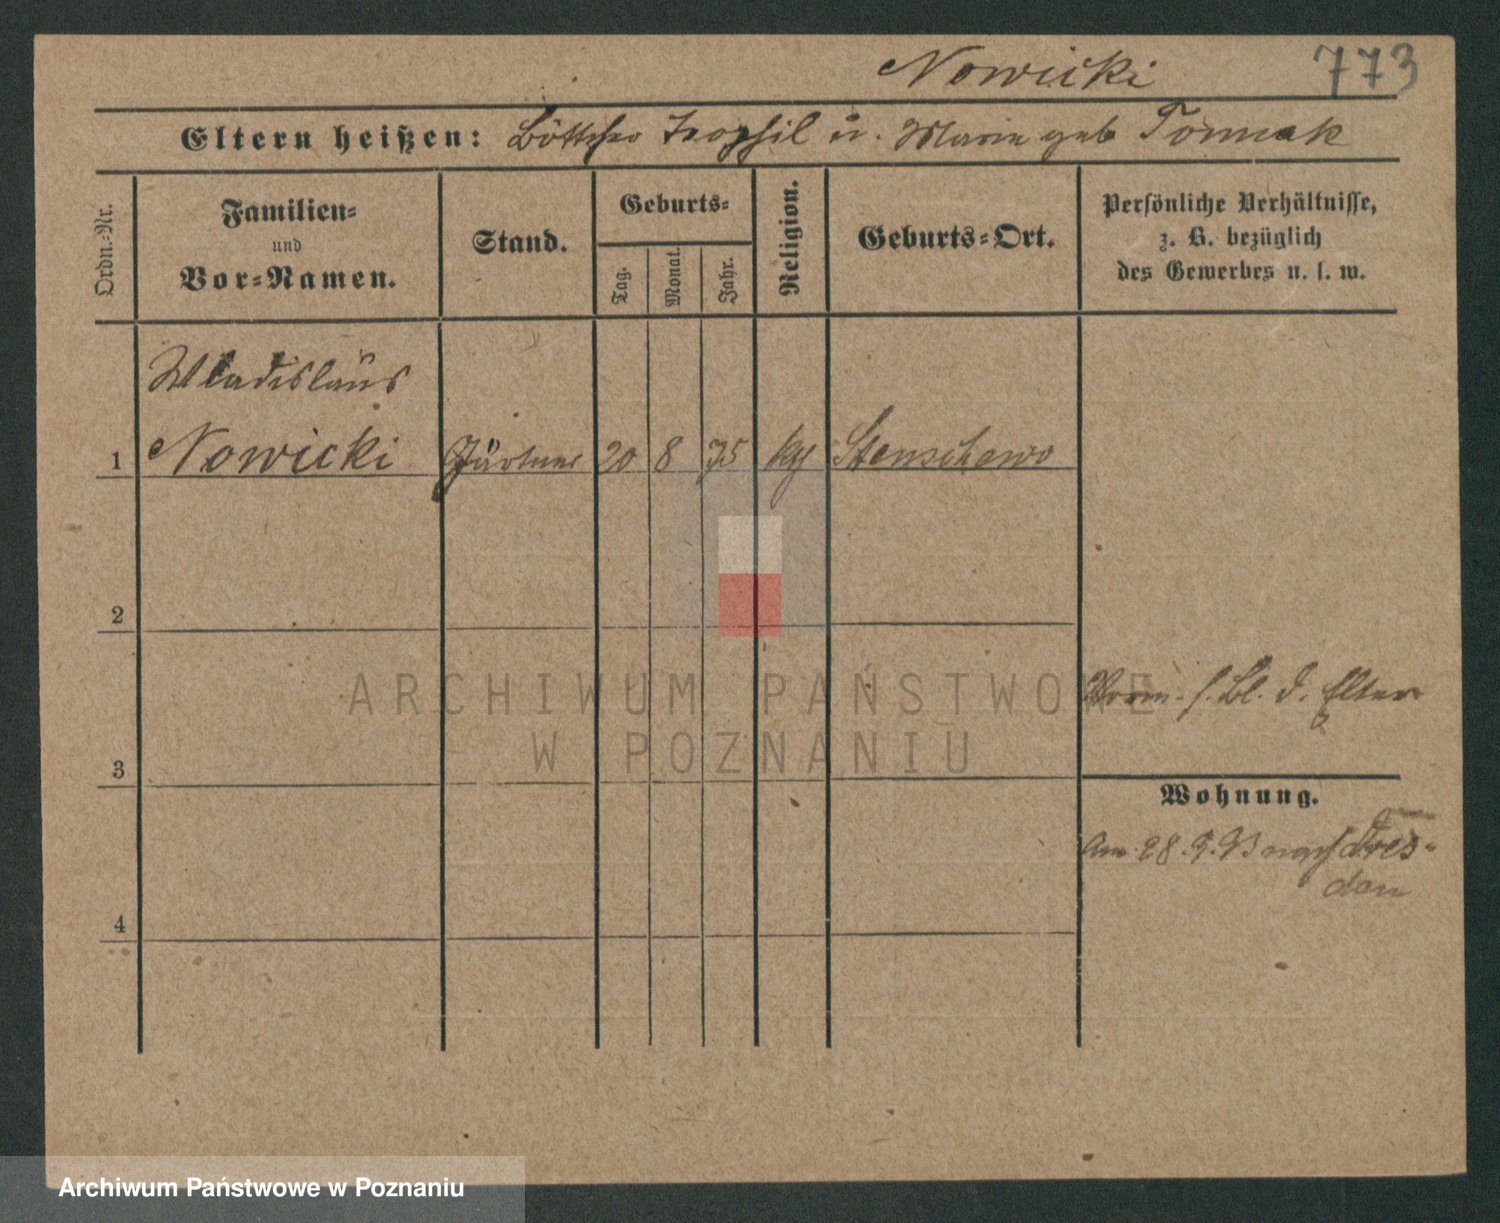 Nowicki 773
Eltern heißen: Böttcher Teophil u. Marie geb Tomiak
Ordn.-Nr.
Familien-
und
Vor-Namen.
Stand.
Geburts-
Tag.
Monat.
Jahr.
Religion.
Geburts-Ort.
Persönliche Verhältnisse,
z. B. bezüglich
des Gewerbes u. s. w.
Wladislaus
1 Nowicki Gärtner 20 8 75 kg Stenschewo
2
Verm. s. Bl. d. Eltern
3
Wohnung.
Am 28. 9. 93 nach Dres-
den
4
ARCHIWUM PAŃSTWOWE
W POZNANIU
Archiwum Państwowe w Poznaniu